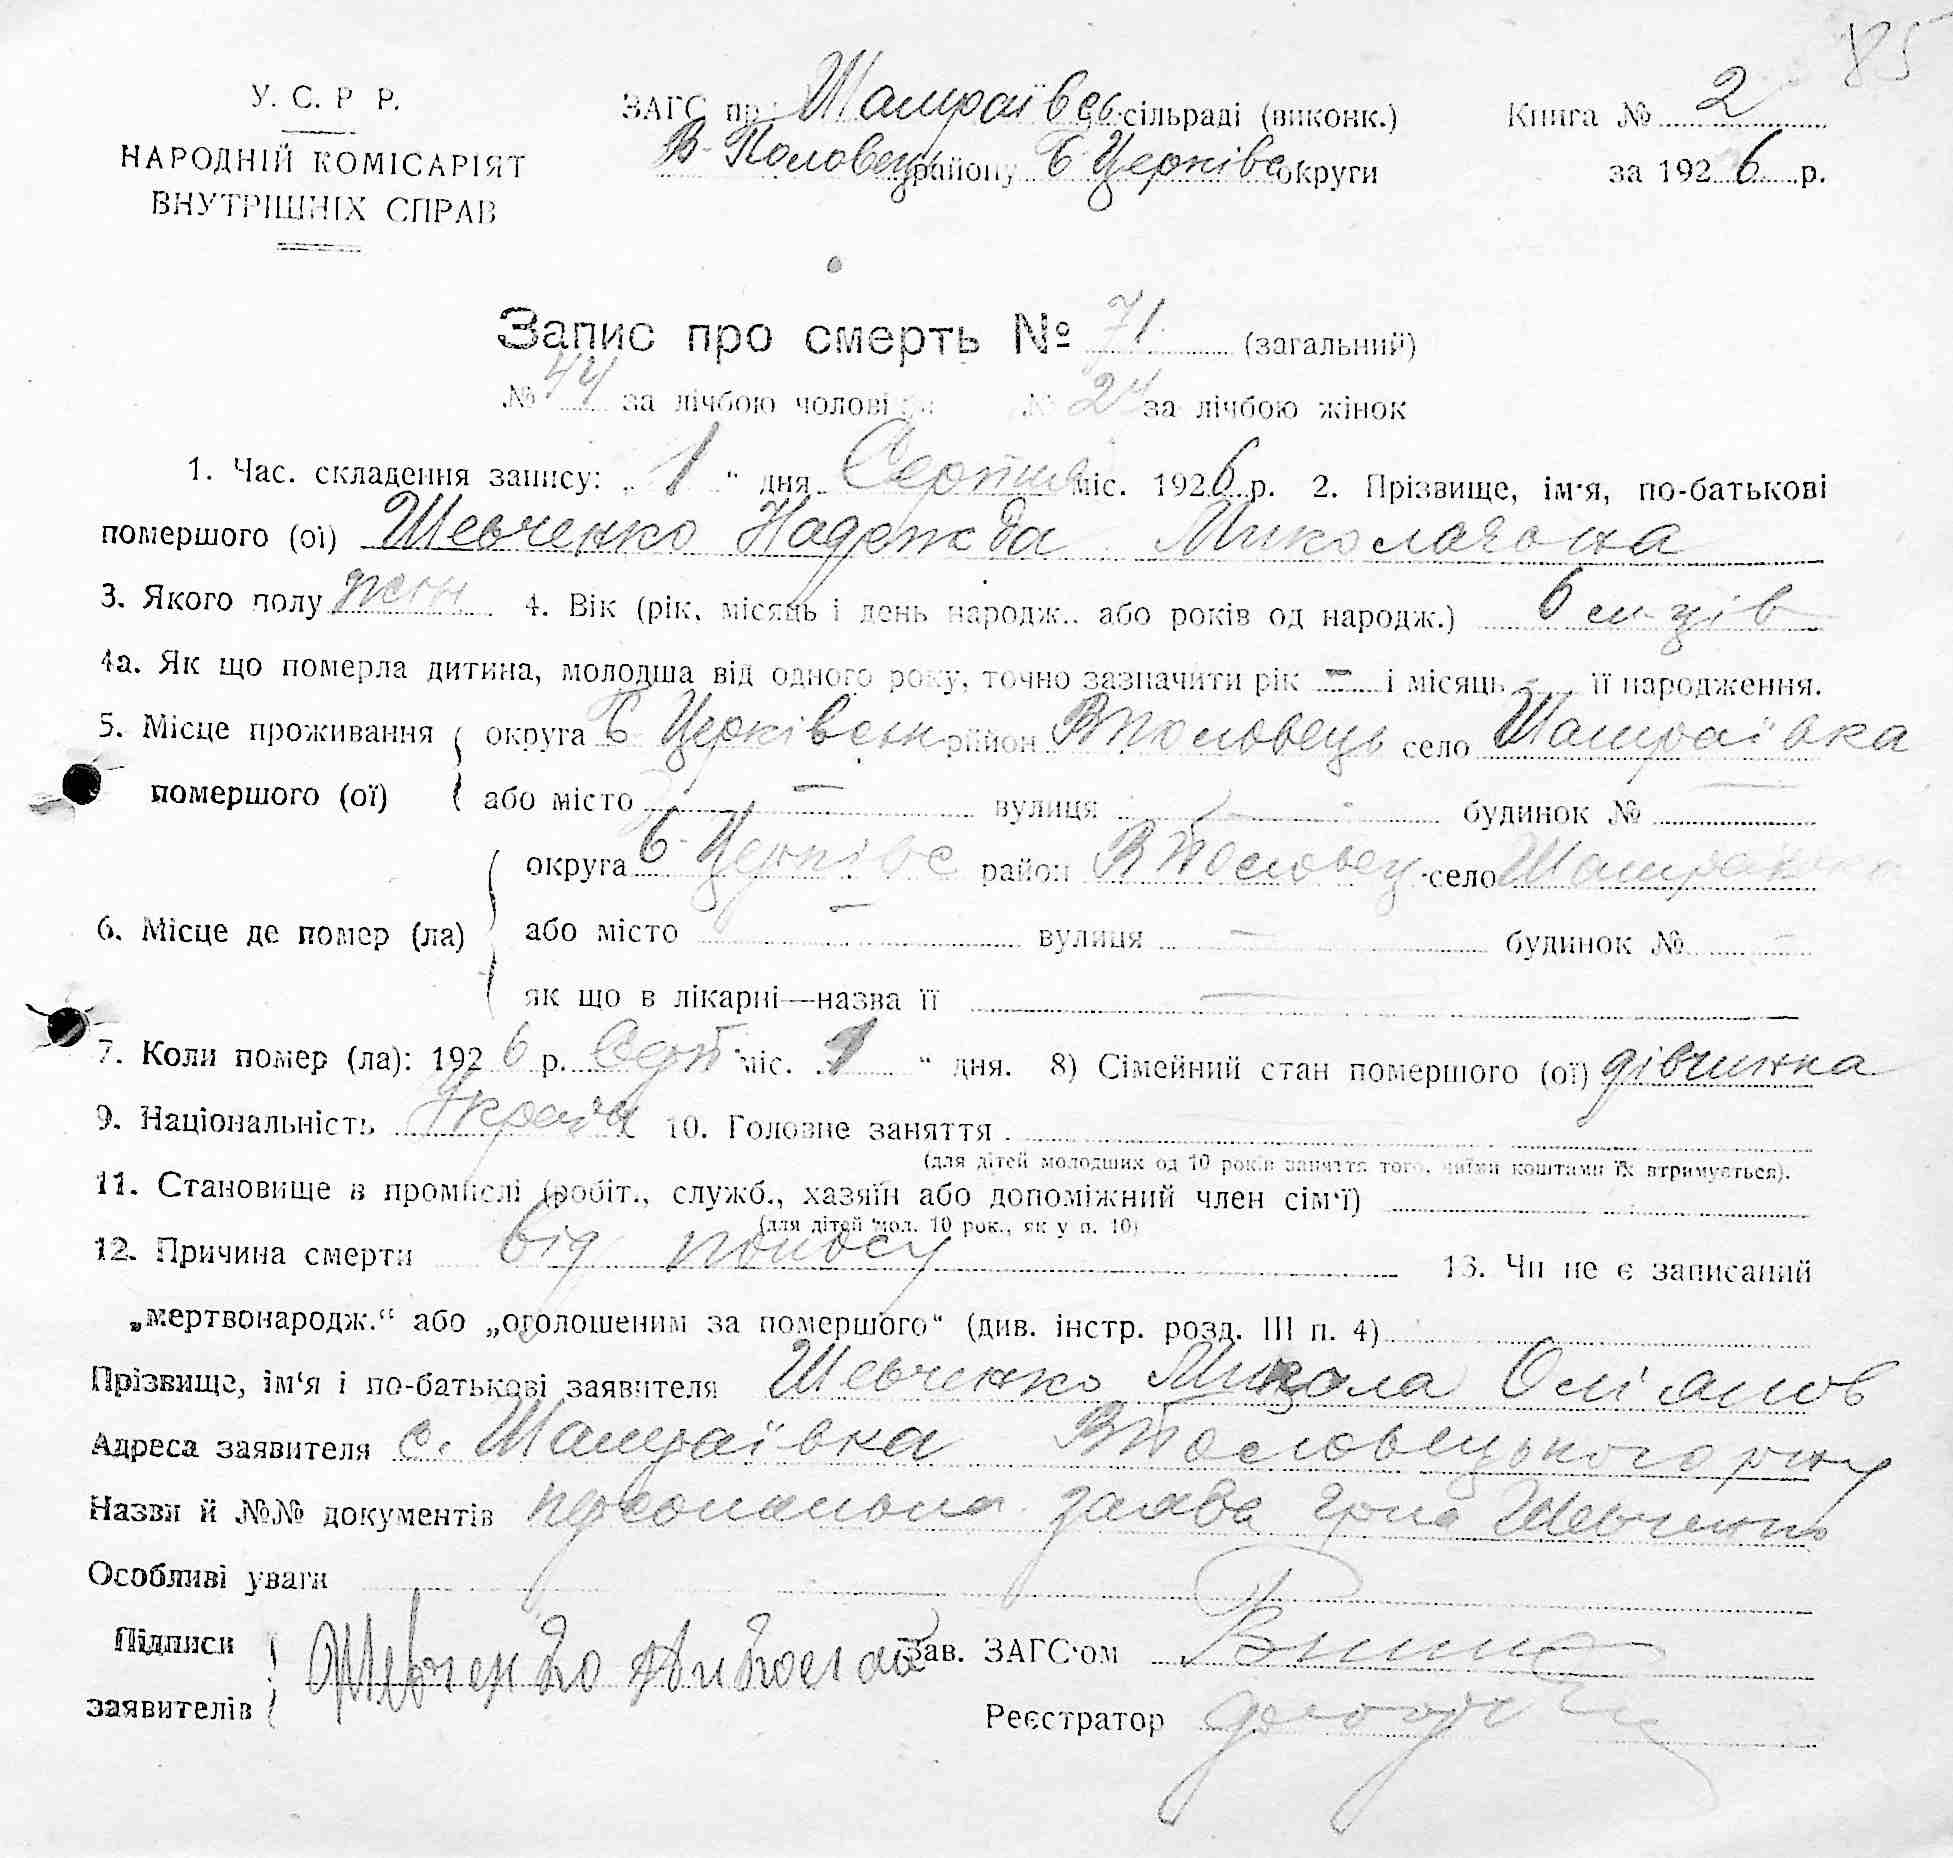 85
У. С. Р Р.
НАРОДНІЙ КОМІСАРІЯТ
ВНУТРІШНІХ СПРАВ
ЗАГС пр. Шамраївсь сільраді (виконк.)
В-Половець району Б Церківс округи
Книга № 2
за 1926 р.
Запис про смерть № 71 (загальний)
№ 44 за лічбою чолові № 24 за лічбою жінок
1. Час. складення запису: „1“ дня Серпня міс. 1926 р. 2. Прізвище, ім'я, по-батькові
помершого (ої) Шевченко Надежда Миколаєвна
3. Якого полу жін 4. Вік (рік, місяць і день народж.. або років од народж.) 6 м-ців
4а. Як що померла дитина, молодша від одного року, точно зазначити рік — і місяць — її народження.
5. Місце проживання округа Б Церківськ район ВПоловець село Шамраївка
помершого (ої) або місто — вулиця — будинок №
округа Б-Церківс район ВПоловец село Шамраївка
6. Місце де помер (ла) або місто — вулиця — будинок № —
як що в лікарні—назва її —
7. Коли помер (ла): 1926 р. Серп міс. 1 “ дня. 8) Сімейний стан помершого (ої) дівчинка
9. Національність Україн 10. Головне заняття
(для дітей молодших од 10 років заняття того, чиїми коштами їх втримується).
11. Становище в промислі (робіт., служб., хазяїн або допоміжний член сім'ї)
(для дітей мол. 10 рок., як у п. 10)
12. Причина смерти від поносу 13. Чи не є записаний
„мертвонародж.“ або „оголошеним за помершого“ (див. інстр. розд. III п. 4)
Прізвище, ім'я і по-батькові заявителя Шевченко Микола
Адреса заявителя с. Шамраївка ВПоловецького р-ну
Назви й №№ документів персональна заява гр-на Шевченко
Особливі уваги
Підписи Шевченко Зав. ЗАГС'ом
заявителів Реєстратор